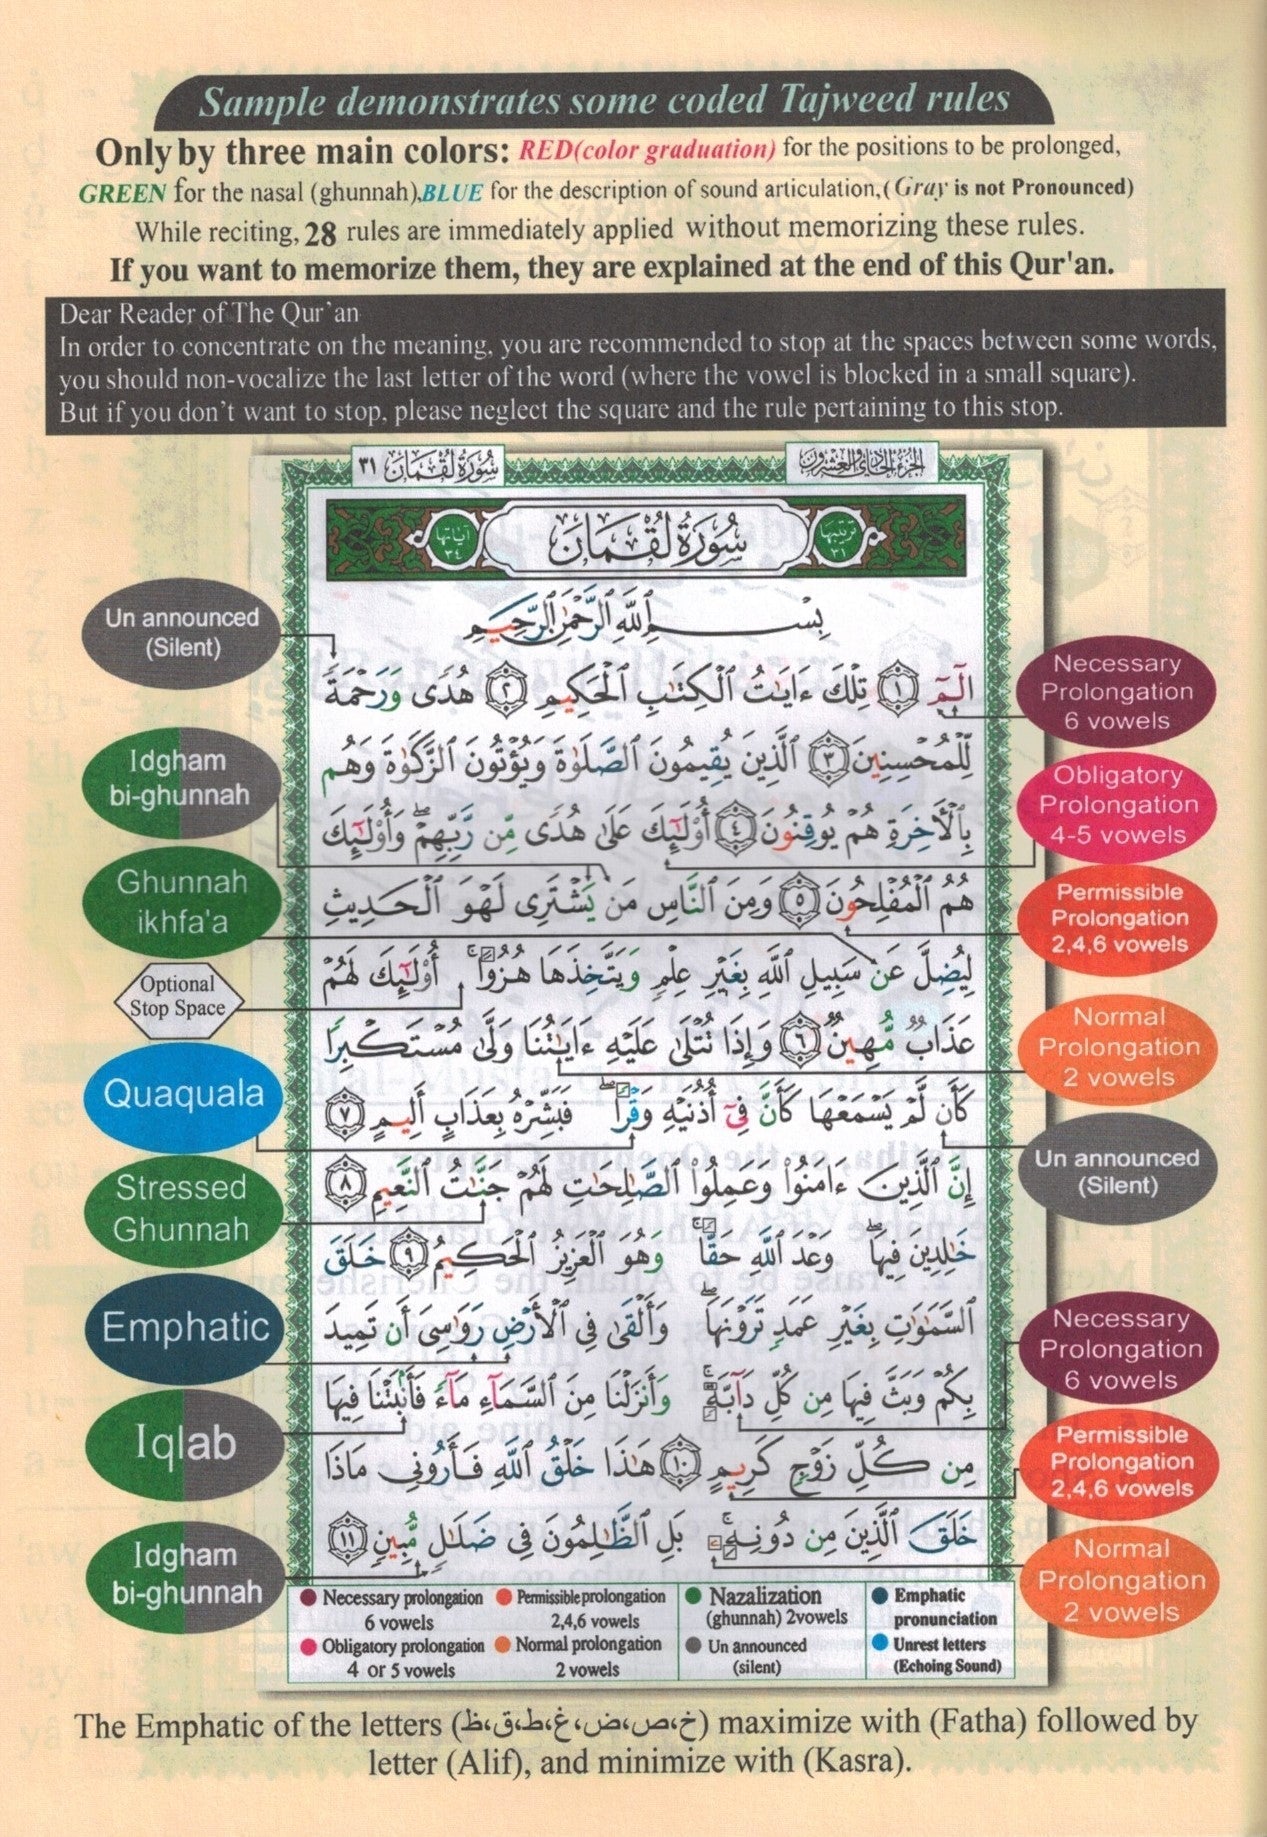 Sample demonstrates some coded Tajweed rules
Only by three main colors: RED(color graduation) for the positions to be prolonged,
GREEN for the nasal (ghunnah),BLUE for the description of sound articulation,( Gray is not Pronounced)
While reciting, 28 rules are immediately applied without memorizing these rules.
If you want to memorize them, they are explained at the end of this Qur'an.
Dear Reader of The Qur'an
In order to concentrate on the meaning, you are recommended to stop at the spaces between some words,
you should non-vocalize the last letter of the word (where the vowel is blocked in a small square).
But if you don't want to stop, please neglect the square and the rule pertaining to this stop.
الجزء الحادي والعشرون
سورة لقمان ٣١
ترتيبها ٣١
سُورَةُ لُقْمَان
آياتها ٣٤
بِسْمِ ٱللَّهِ ٱلرَّحْمَٰنِ ٱلرَّحِيمِ
الٓمٓ ١ تِلْكَ ءَايَٰتُ ٱلْكِتَٰبِ ٱلْحَكِيمِ ٢ هُدًى وَرَحْمَةً
لِّلْمُحْسِنِينَ ٣ ٱلَّذِينَ يُقِيمُونَ ٱلصَّلَوٰةَ وَيُؤْتُونَ ٱلزَّكَوٰةَ وَهُم
بِٱلْأَخِرَةِ هُمْ يُوقِنُونَ ٤ أُوْلَٰٓئِكَ عَلَىٰ هُدًى مِّن رَّبِّهِمْ ۖ وَأُوْلَٰٓئِكَ
هُمُ ٱلْمُفْلِحُونَ ٥ وَمِنَ ٱلنَّاسِ مَن يَشْتَرِى لَهْوَ ٱلْحَدِيثِ
لِيُضِلَّ عَن سَبِيلِ ٱللَّهِ بِغَيْرِ عِلْمٍ وَيَتَّخِذَهَا هُزُوًا ۚ أُوْلَٰٓئِكَ لَهُمْ
عَذَابٌ مُّهِينٌ ٦ وَإِذَا تُتْلَىٰ عَلَيْهِ ءَايَٰتُنَا وَلَّىٰ مُسْتَكْبِرًا
كَأَن لَّمْ يَسْمَعْهَا كَأَنَّ فِىٓ أُذُنَيْهِ وَقْرًا ۖ فَبَشِّرْهُ بِعَذَابٍ أَلِيمٍ ٧
إِنَّ ٱلَّذِينَ ءَامَنُوا۟ وَعَمِلُوا۟ ٱلصَّٰلِحَٰتِ لَهُمْ جَنَّٰتُ ٱلنَّعِيمِ ٨
خَٰلِدِينَ فِيهَا ۖ وَعْدَ ٱللَّهِ حَقًّا ۚ وَهُوَ ٱلْعَزِيزُ ٱلْحَكِيمُ ٩ خَلَقَ
ٱلسَّمَٰوَٰتِ بِغَيْرِ عَمَدٍ تَرَوْنَهَا ۖ وَأَلْقَىٰ فِى ٱلْأَرْضِ رَوَٰسِىَ أَن تَمِيدَ
بِكُمْ وَبَثَّ فِيهَا مِن كُلِّ دَآبَّةٍ ۚ وَأَنزَلْنَا مِنَ ٱلسَّمَآءِ مَآءً فَأَنۢبَتْنَا فِيهَا
مِن كُلِّ زَوْجٍ كَرِيمٍ ١٠ هَٰذَا خَلْقُ ٱللَّهِ فَأَرُونِى مَاذَا
خَلَقَ ٱلَّذِينَ مِن دُونِهِۦ ۚ بَلِ ٱلظَّٰلِمُونَ فِى ضَلَٰلٍ مُّبِينٍ ١١
Un announced
(Silent)
Idgham
bi-ghunnah
Ghunnah
ikhfa'a
Optional
Stop Space
Quaquala
Stressed
Ghunnah
Emphatic
Iqlab
Idgham
bi-ghunnah
Necessary
Prolongation
6 vowels
Obligatory
Prolongation
4-5 vowels
Permissible
Prolongation
2,4,6 vowels
Normal
Prolongation
2 vowels
Un announced
(Silent)
Necessary
Prolongation
6 vowels
Permissible
Prolongation
2,4,6 vowels
Normal
Prolongation
2 vowels
Necessary prolongation
6 vowels
Permissible prolongation
2,4,6 vowels
Nazalization
(ghunnah) 2vowels
Emphatic
pronunciation
Obligatory prolongation
4 or 5 vowels
Normal prolongation
2 vowels
Un announced
(silent)
Unrest letters
(Echoing Sound)
The Emphatic of the letters (خ،ص،ض،غ،ط،ق،ظ) maximize with (Fatha) followed by
letter (Alif), and minimize with (Kasra).